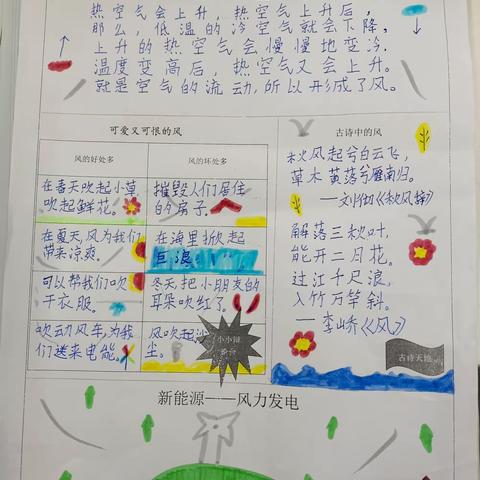 热空气会上升，热空气上升后，
那么，低温的冷空气就会下降，
上升的热空气会慢慢地变冷.
温度变高后，热空气又会上升。
就是空气的流动,所以形成了风。
可爱又可恨的风
风的好处多
风的坏处多
在春天吹起小草
吹起鲜花。
摧毁人们居住
的房子.
在夏天,风为我们
带来凉爽.
在海里掀起
巨浪
可以帮我们吹
干衣服.
冬天把小朋友的
耳朵吹红了.
吹动风车,为我
们送来电能。
风吹起沙
尘。
小小辩
论台
古诗中的风
秋风起兮白云飞，
草木黄落兮雁南归。
——刘彻《秋风辞》
解落三秋叶，
能开二月花。
过江千尺浪，
入竹万竿斜。
——李峤《风》
古诗天地
新能源——风力发电